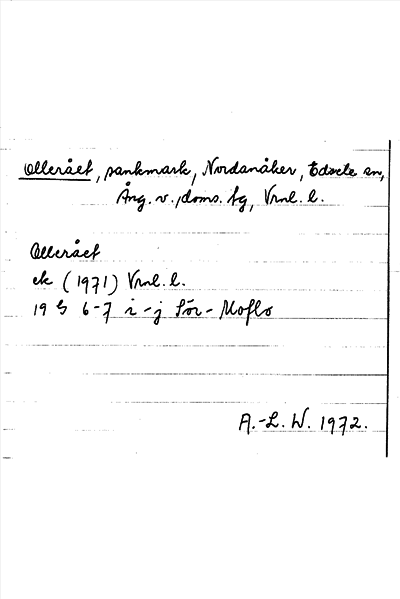 Ollerået, sankmark, Nordanåker, Edsele sn,
Ång. v. doms. tg, Vrnl. l.
Ollerået
ek (1971) Vrnl. l.
19 G 6-7 i-j Sör-Moflo
A.-L. W. 1972.